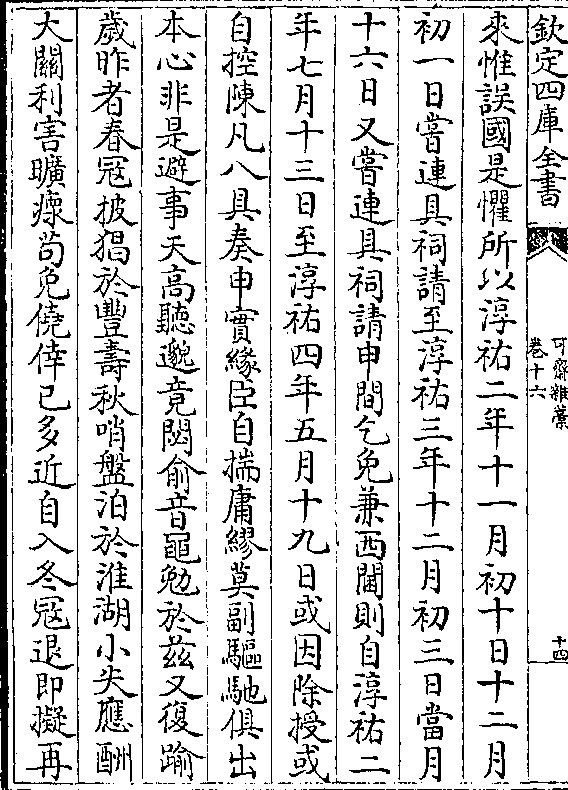 欽定四庫全書
可齋雜藁
卷十六
十四
來惟誤國是懼所以淳祐二年十一月初十日十二月
初一日嘗連具祠請至淳祐三年十二月初三日當月
十六日又嘗連具祠請申間乞免兼西閫則自淳祐二
年七月十三日至淳祐四年五月十九日或因除授或
自控陳凡八具奏申實緣臣自揣庸繆莫副驅馳俱出
本心非是避事天高聽邈竟閟俞音黽勉於兹又復踰
歲昨者春冦披猖於豐壽秋哨盤泊於淮湖小失應酬
大關利害曠瘝茍免僥倖已多近自入冬冦退即擬再